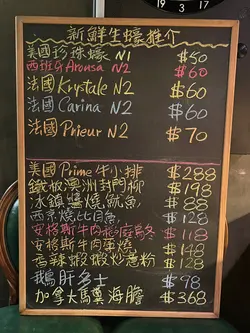 19 3 17
新鮮生蠔推介
美國珍珠蠔 N1 $50
西班牙Arousa N2 $60
法國Krystale N2 $60
法國Carina N2 $60
法國Prieur N2 $70
美國Prime牛小排 $288
鐵板澳洲封門柳 $198
冰鎮醬燒魷魚 $88
西京燒比目魚 $128
安格斯牛肉 $118
安格斯牛肉 $148
香辣蝦 炒薏粉 $128
鵝肝多士 $98
加拿大馬糞海膽 $368